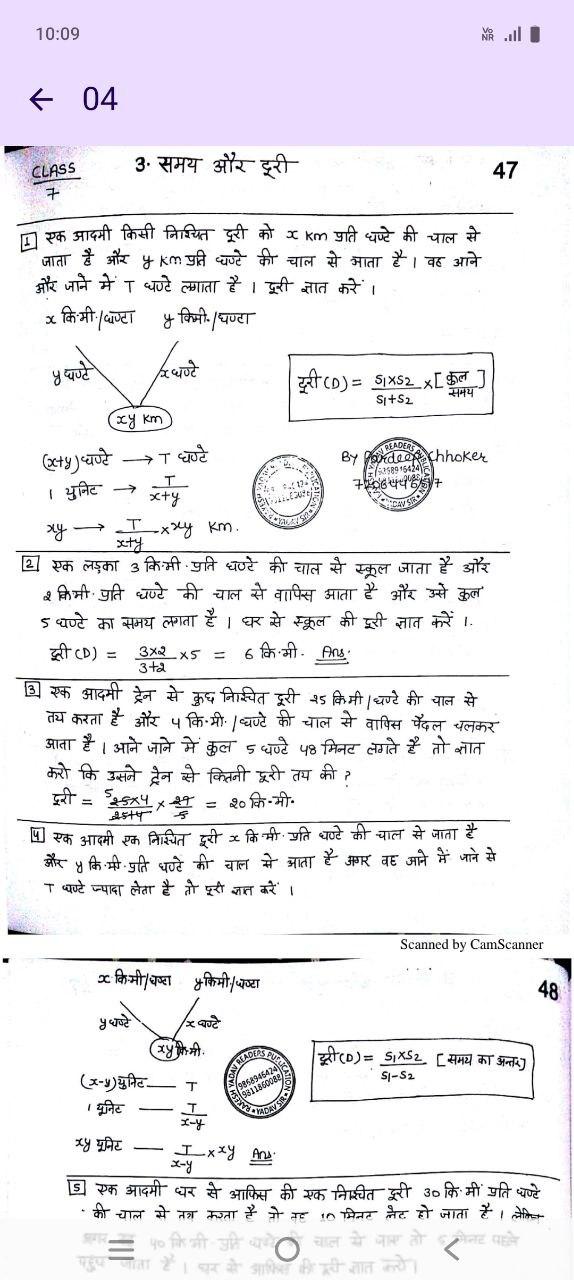 10:09
Vo
NR
← 04
CLASS
7
3. समय और दूरी
47
1 एक आदमी किसी निश्चित दूरी को x km प्रति घण्टे की चाल से
जाता है और y km प्रति घण्टे की चाल से आता है। वह आने
और जाने में T घण्टे लगाता है। दूरी ज्ञात करें।
x कि.मी./घण्टा y किमी./घण्टा
y घण्टे x घण्टे
xy km
दूरी (D) = S1×S2/S1+S2 × [कुल समय]
(x+y) घण्टे → T घण्टे
1 युनिट → T/x+y
xy → T/x+y × xy km.
By Pardeep Chhoker
2 एक लड़का 3 कि.मी. प्रति घण्टे की चाल से स्कूल जाता है और
2 कि.मी. प्रति घण्टे की चाल से वापिस आता है और उसे कुल
5 घण्टे का समय लगता है। घर से स्कूल की दूरी ज्ञात करें।.
दूरी (D) = 3×2/3+2 ×5 = 6 कि.मी. Ans.
3 एक आदमी ट्रेन से कुछ निश्चित दूरी 25 कि.मी/घण्टे की चाल से
तय करता है और 4 कि.मी./घण्टे की चाल से वापिस पैदल चलकर
आता है। आने जाने में कुल 5 घण्टे 48 मिनट लगते है तो ज्ञात
करो कि उसने ट्रेन से कितनी दूरी तय की ?
दूरी = 5 25×4/25+4 × 29/5 = 20 कि.मी.
4 एक आदमी एक निश्चित दूरी x कि.मी. प्रति घण्टे की चाल से जाता है
और y कि.मी. प्रति घण्टे की चाल से आता है अगर वह आने में जाने से
T घण्टे ज्यादा लेता है तो दूरी ज्ञात करें।
Scanned by CamScanner
x कि.मी/घण्टा y किमी/घण्टा
48
y घण्टे x घण्टे
xy कि.मी.
दूरी (D) = S1×S2/S1-S2 [समय का अन्तर]
(x-y) युनिट — T
1 युनिट — T/x-y
xy युनिट — T/x-y × xy Ans.
RAKESH YADAV READERS PUBLICATION
9868946424
9811860088
YADAV SIR
5 एक आदमी घर से आफिस की एक निश्चित दूरी 30 कि.मी प्रति घण्टे
की चाल से तय करता है तो वह 10 मिनट लेट हो जाता है। लेकिन
अगर वह 40 कि.मी. प्रति घण्टे की चाल से जाए तो 5 मिनट पहले
पहुंच जाता है। घर से आफिस की दूरी ज्ञात करो।